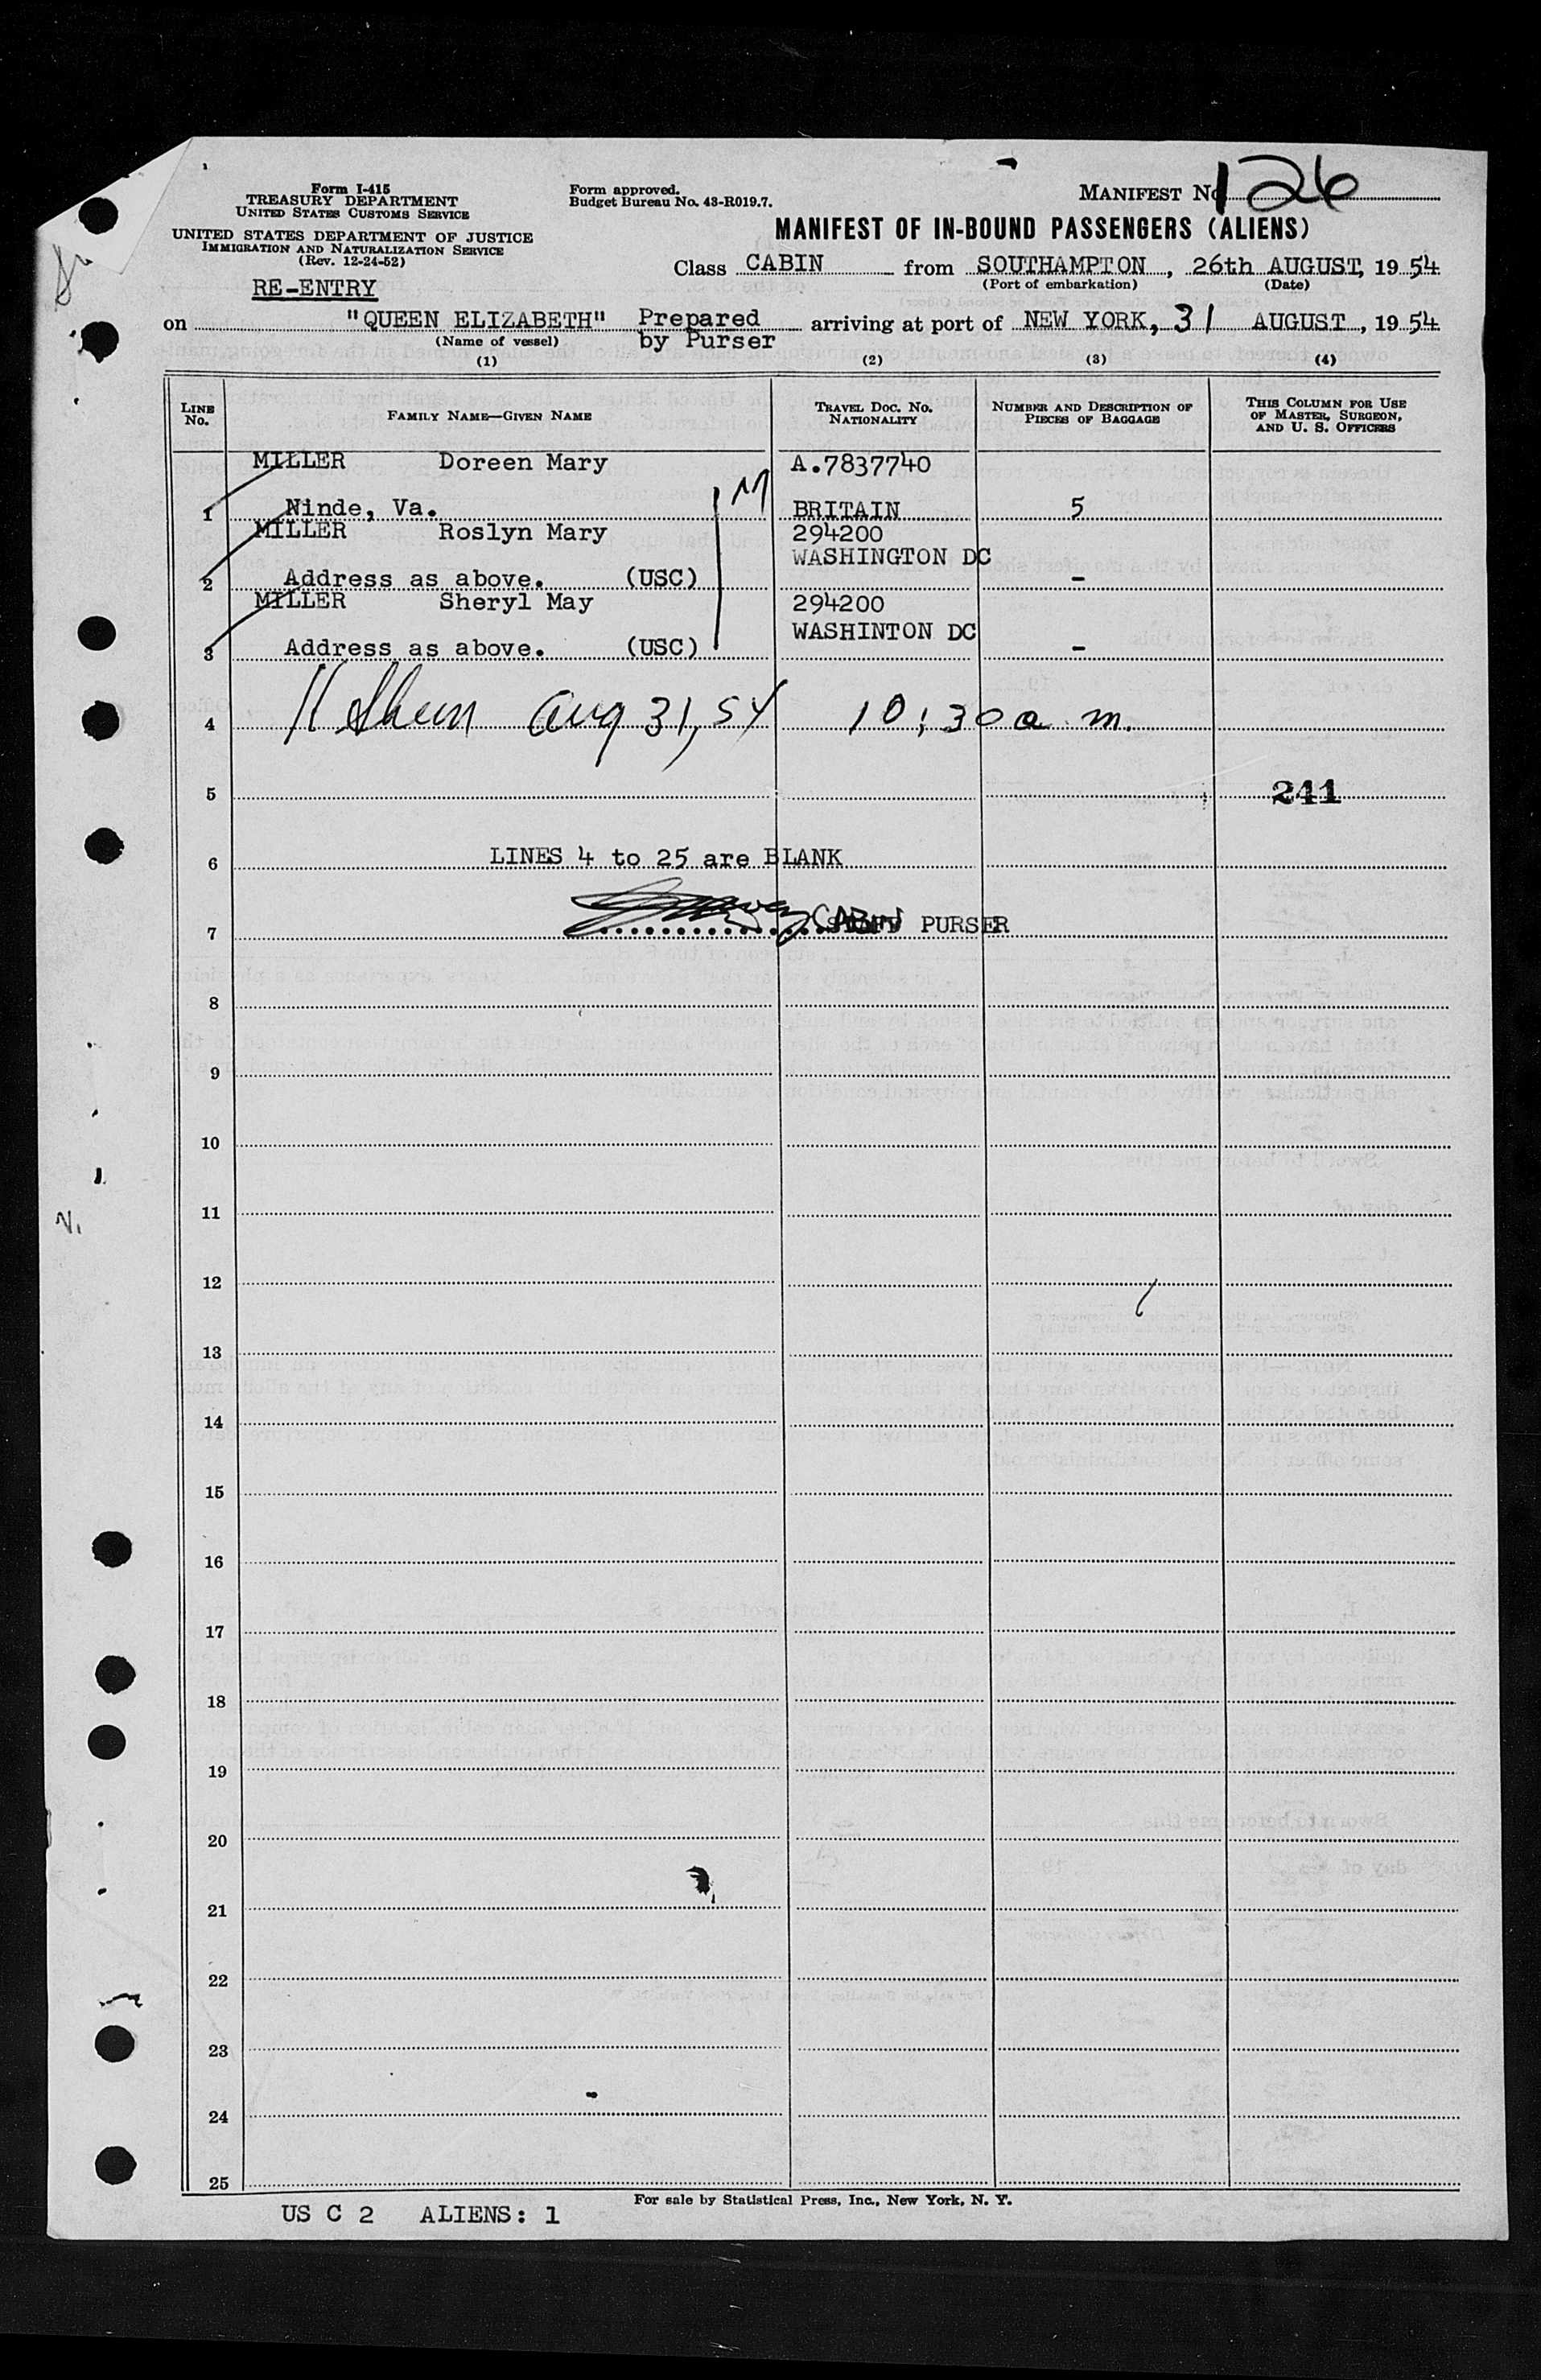 Form I-415
TREASURY DEPARTMENT
UNITED STATES CUSTOMS SERVICE
UNITED STATES DEPARTMENT OF JUSTICE
IMMIGRATION AND NATURALIZATION SERVICE
(Rev. 12-24-52)
RE-ENTRY
Form approved.
Budget Bureau No. 43-R019.7.
MANIFEST No. 126
MANIFEST OF IN-BOUND PASSENGERS (ALIENS)
Class CABIN from SOUTHAMPTON, 26th AUGUST, 1954
(Port of embarkation) (Date)
on "QUEEN ELIZABETH" Prepared by Purser arriving at port of NEW YORK, 31 AUGUST, 1954
(Name of vessel)
(1) (2) (3) (4)
LINE No. FAMILY NAME—GIVEN NAME TRAVEL DOC. No. NATIONALITY NUMBER AND DESCRIPTION OF PIECES OF BAGGAGE THIS COLUMN FOR USE OF MASTER, SURGEON, AND U. S. OFFICERS
MILLER Doreen Mary A.7837740
1 Ninde, Va. M BRITAIN 5
MILLER Roslyn Mary 294200
WASHINGTON DC
2 Address as above. (USC) -
MILLER Sheryl May 294200
WASHINTON DC
3 Address as above. (USC) -
4 Aug 31, 54 10:30 a.m.
5 241
6 LINES 4 to 25 are BLANK
7 CABIN PURSER
8
9
10
11
12
13
14
15
16
17
18
19
20
21
22
23
24
25
For sale by Statistical Press, Inc., New York, N. Y.
US C 2 ALIENS: 1